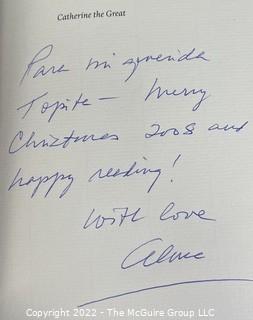 Catherine the Great
Para mi querida
Topita — Merry
Christmas 2008 and
happy reading!
With love
Copyright 2022 - The McGuire Group LLC